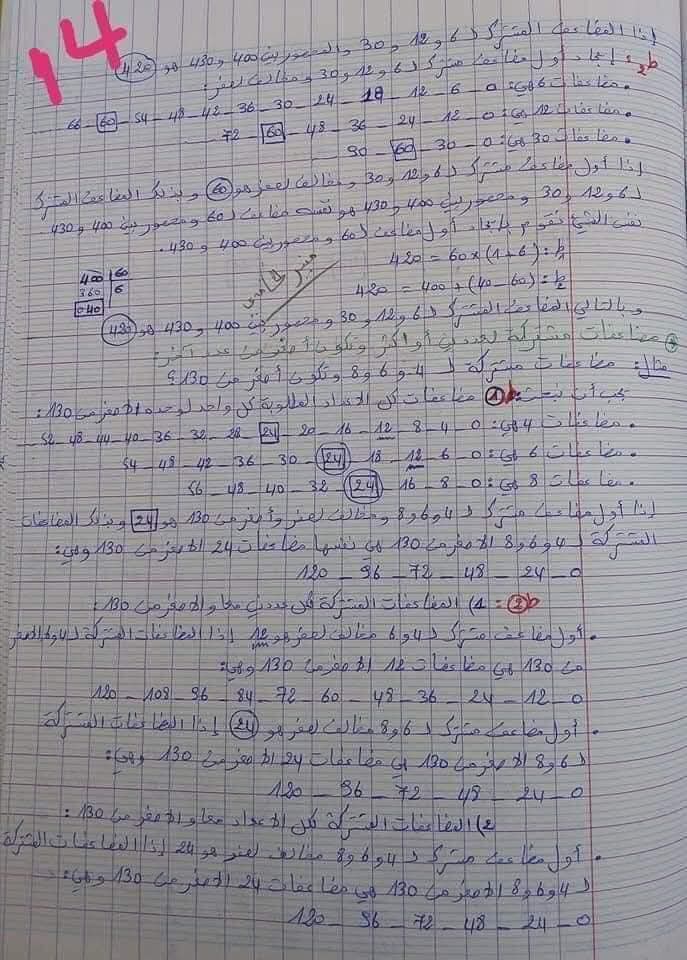 14
إذا المضاعف المشترك لـ 6 و 12 و 30 والمحصور بين 400 و 430 هو 420
ط2: إيجاد أول مضاعف مشترك لـ 6 و 12 و 30 ومخالف لصفر:
• مضاعفات 6 هي: 0 – 6 – 12 – 18 – 24 – 30 – 36 – 42 – 48 – 54 – 60 – 66
• مضاعفات 12 هي: 0 – 12 – 24 – 36 – 48 – 60 – 72
• مضاعفات 30 هي: 0 – 30 – 60 – 90
إذا أول مضاعف مشترك لـ 6 و 12 و 30 ومخالف لصفر هو 60 وبذلك المضاعف المشترك
لـ 6 و 12 و 30 ومحصور بين 400 و 430 هو نفسه مضاعف لـ 60 ومحصور بين 400 و 430
نفس الشيء نقوم بإيجاد أول مضاعف لـ 60 ومحصور بين 400 و 430.
ط1: 420 = 60 × (1 + 6)
ط2: 420 = 400 + (40 – 60)
400 | 60
360 | 6
040
وبالتالي المضاعف المشترك لـ 6 و 12 و 30 ومحصور بين 400 و 430 هو 420
* مضاعفات مشتركة لعددين أو أكثر وتكون أصغر من عدد آخر:
مثال: مضاعفات مشتركة لـ 4 و 6 و 8 وتكون أصغر من 130؟
ط1: يجب أن نبحث مضاعفات كل الأعداد المطلوبة كل واحد لوحده الأصغر من 130:
• مضاعفات 4 هي: 0 – 4 – 8 – 12 – 16 – 20 – 24 – 28 – 32 – 36 – 40 – 44 – 48 – 52
• مضاعفات 6 هي: 0 – 6 – 12 – 18 – 24 – 30 – 36 – 42 – 48 – 54
• مضاعفات 8 هي: 0 – 8 – 16 – 24 – 32 – 40 – 48 – 56
إذا أول مضاعف مشترك لـ 4 و 6 و 8 ومخالف لصفر وأصغر من 130 هو 24 وبذلك المضاعفات
المشتركة لـ 4 و 6 و 8 الأصغر من 130 هي نفسها مضاعفات 24 الأصغر من 130 وهي:
0 – 24 – 48 – 72 – 96 – 120
ط2: 1) المضاعفات المشتركة لكل عددين معا والأصغر من 130:
• أول مضاعف مشترك لـ 4 و 6 مخالف لصفر هو 12 إذا المضاعفات المشتركة لـ 4 و 6 الأصغر
من 130 هي مضاعفات 12 الأصغر من 130 وهي:
0 – 12 – 24 – 36 – 48 – 60 – 72 – 84 – 96 – 108 – 120
• أول مضاعف مشترك لـ 6 و 8 مخالف لصفر هو 24 إذا المضاعفات المشتركة
لـ 6 و 8 الأصغر من 130 هي مضاعفات 24 الأصغر من 130 وهي:
0 – 24 – 48 – 72 – 96 – 120
2) المضاعفات المشتركة لكل الأعداد معا والأصغر من 130:
• أول مضاعف مشترك لـ 4 و 6 و 8 مخالف لصفر هو 24 إذا المضاعفات المشتركة
لـ 4 و 6 و 8 الأصغر من 130 هي مضاعفات 24 الأصغر من 130 وهي:
0 – 24 – 48 – 72 – 96 – 120